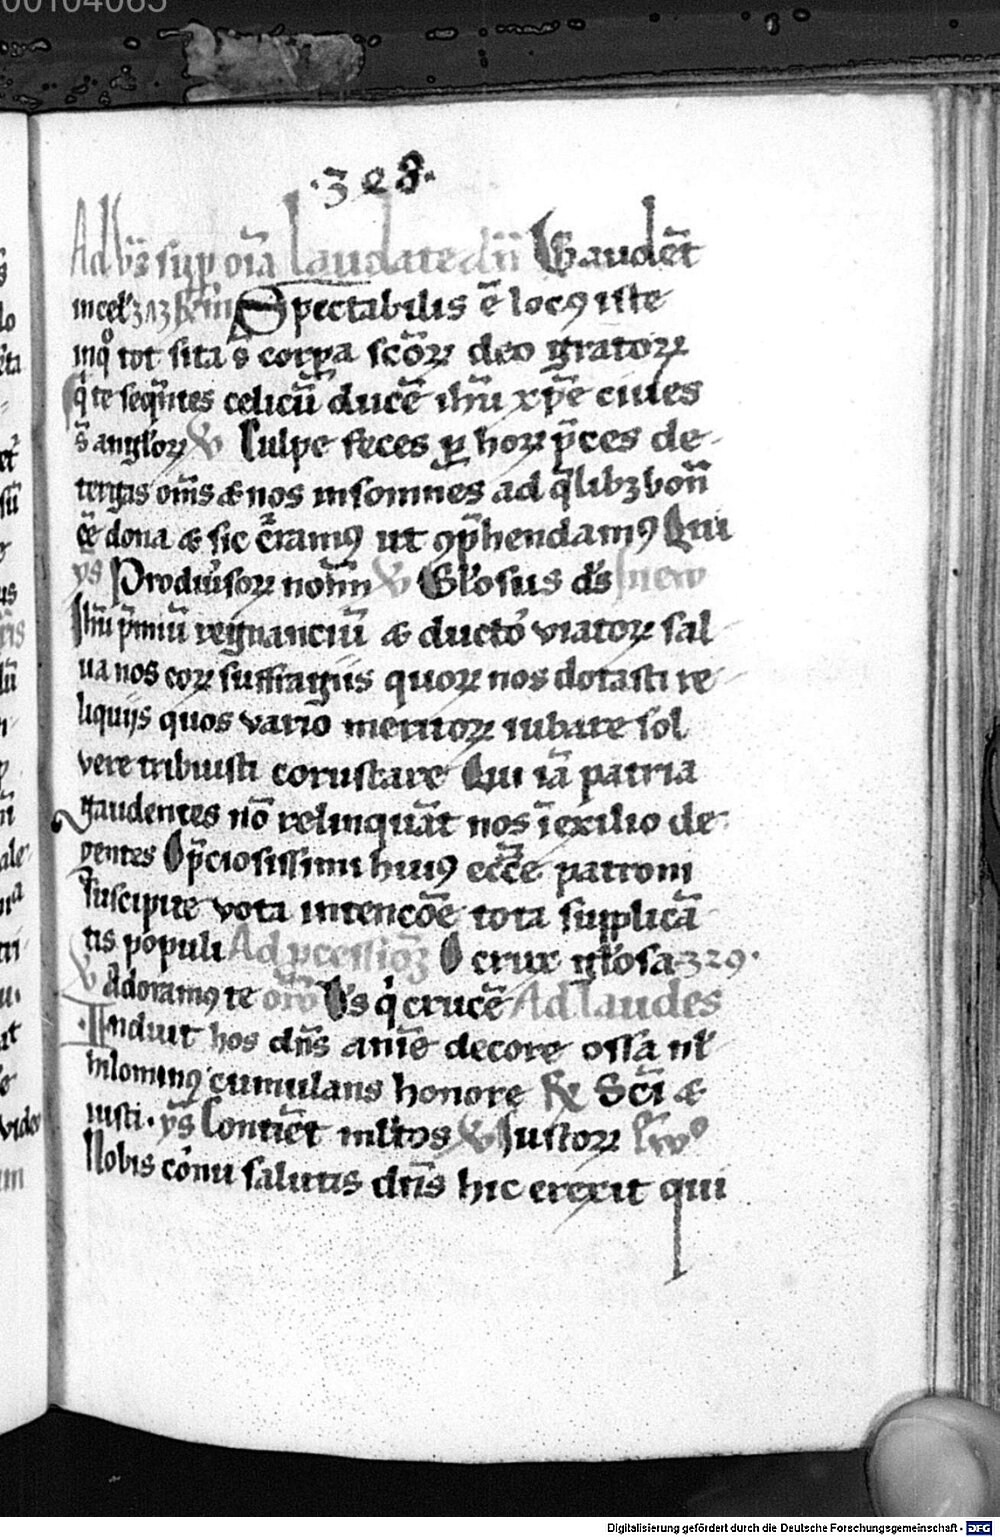 00104085
·328·
Ad Vs̄ sup̱ oīa Laudate dn̄m Gaudēt
in cel' Rm̄ Spectabilis ē locꝯ iste
in qͦ tot sita s̄ corꝑa scōꝝ deo gratoꝝ
q̄ te seqn̄tes celicū ducē ihū xp̄e ciues
s̄ angl'oꝝ ℣ Culpe feces ꝑ hoꝝ p̄ces de-
tergas om̄s & nos insomnes ad q̄libꝫ bonū
ēē dona & sic c̄ramꝯ ut ꝯp̄hendamꝯ Qui
ys̄ Prodiu'soꝝ ℣ Gl'osus ds̄
Ihū p̄miū regnanciū & ductō viatoꝝ sal
ua nos eoꝝ suffragiis quoꝝ nos dotasti re-
liquijs quos vario meritoꝝ iubare sol
vere tribuisti coruscare Qui iā patria
gaudentes nō relinquāt nos ī exilio de-
gentes O p̄ciosissimi huiꝯ ecc̄e patroni
suscipite vota intencōe tota supplicā
tis populi Ad ꝓcessioꝫ O crux gl'osa 329·
℣ Adoramꝯ te orō Ds̄ q' crucē Ad laudes
Induit hos dn̄s anīe decore ossa n̄
hilominꝯ cumulans honore ℟ Scī &
iusti· ys̄ Contīet ml'tos ℣ Iustoꝝ
Nobis cornu salutis dn̄s hic erexit qui
Digitalisierung gefördert durch die Deutsche Forschungsgemeinschaft - DFG